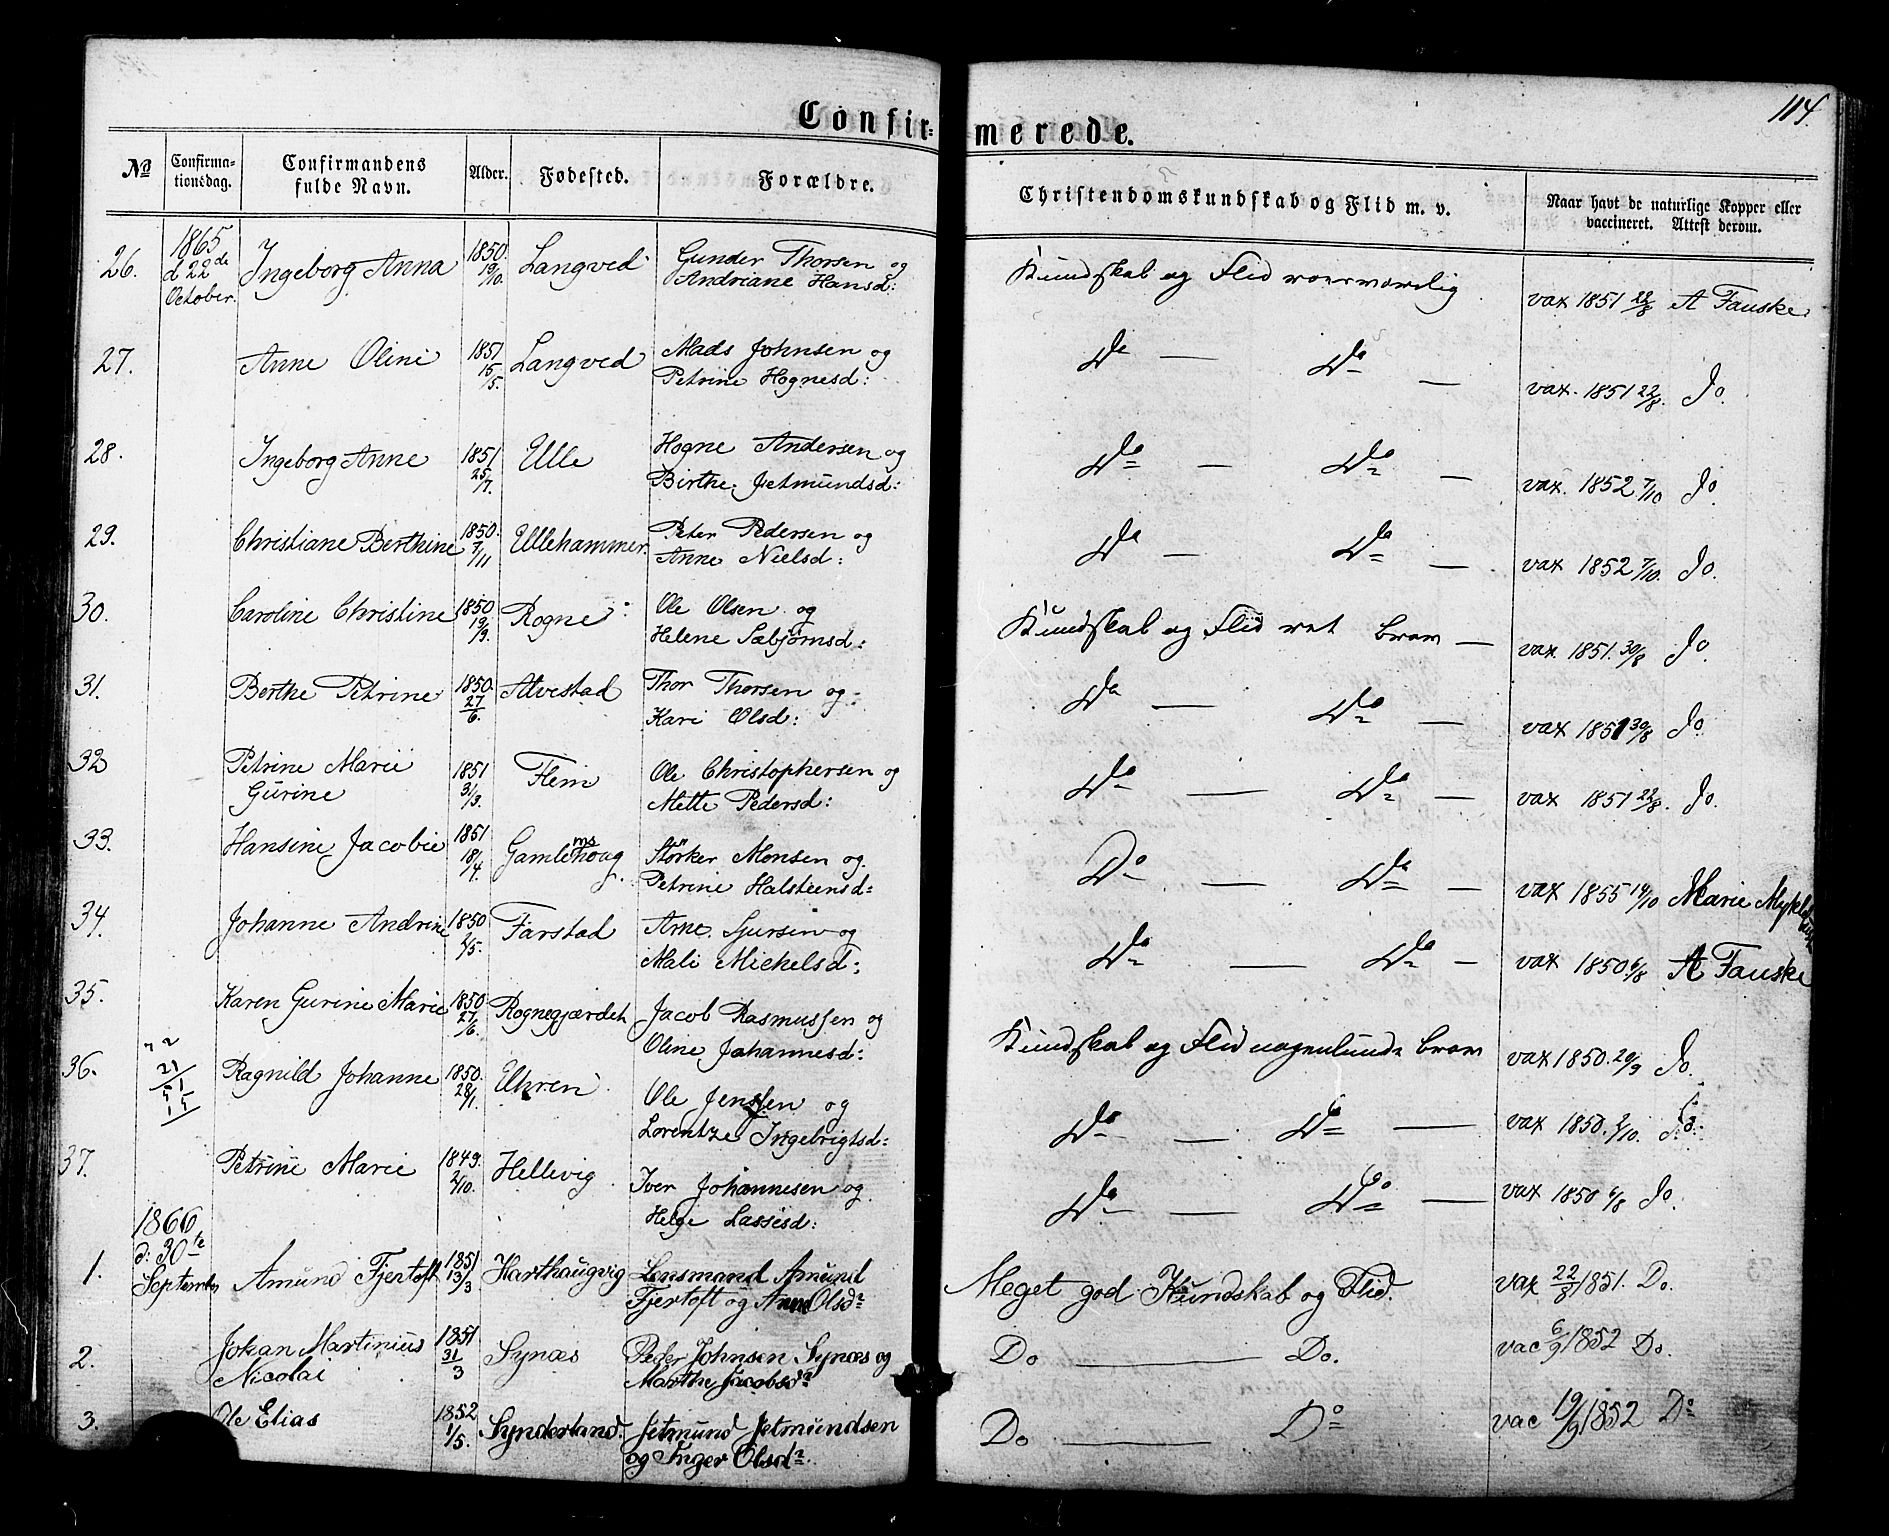 114.
Confir=merede.
No
Confirma-
tionsdag.
Confirmandens
fulde Navn.
Alder.
Fødested.
Forældre.
Christendomskundskab og Flid m. v.
Naar havt de naturlige Kopper eller
vaccineret. Attest derom.
26. 1865 d 22de October. Ingeborg Anna 1850. 19/10. Langved Gunder Thorsen og
Andriane Hansd: Kundskab og Flid vax 1851 22/8 A Fauske
27. Anne Oline 1851 15/5. Langved Mads Johnsen og
Petrine Hognesd: Do — Do — vax. 1851 22/8. Do.
28. Ingeborg Anne 1851 25/7. Ulle Hogne Andersen og
Birthe Jetmundsd: Do — Do — vax. 1852 7/10 Do
29. Christiane Berthine 1850. 7/11 Ullehammer. Peter Pedersen og
Anne Nielsd: Do — Do — vax 1852 7/10. Do.
30. Caroline Christine 1850 19/9. Rogne Ole Olsen og
Helene Sæbjørnsd: Kundskab og Flid ret brav — vax. 1851. 30/8 Do.
31. Berthe Petrine 1850. 27/6. Alvestad Thor Thorsen og
Kari Olsd: Do — Do — vax 1851 30/8 Do
32 Petrine Marie
Gurine 1851 31/3. Flem Ole Christophersen og
Mette Pedersd: Do — Do — vax 1851 22/8. Do.
33. Hansine Jacobie 1851 18/4. Gamlemshoug Störker Monsen og
Petrine Halsteensd= Do — Do — vax 1855 14/10 Marie
34. Johanne Andrine 1850 2/5. Farstad Arne Sjursen og
Mali Mickelsd: Do — Do — vax 1850 6/8 A Fauske
35. Karen Gurine Marie 1850 27/6. Rognegjærdet Jacob Rasmussen og
Oline Johannesd: Kundskab og Flid nogenlunde brav vax 1850. 20/9 Do.
36. Ragnild Johanne 1850. 28/1. Ole Jenssen og
Lorentze Ingebrigtsd: Do — Do — vax 1850. 2/10. Do.
37. Petrine Marie 1849. 2/10. Hellevig Iver Johannesen og
Helge Lassesd: Do — Do — vax 1850 6/8 Do.
1. 1866 d: 30te September Amund Fjertoft 1851 13/3 Harthaugvig Lensmand Amund
Fjertoft og Anne Olsdr Meget god Kundskab og Flid. vax 22/8 1851. Do.
2. Johan Martinius
Nicolai 1851 31/3 Synæs Peder Johnsen Synæs og
Marthe Jacobsdr Do — Do. vac 6/9 1852 Do.
3. Ole Elias 1852 1/5. Synderland. Jetmund Jetmundsen
og Inger Olsdr. Do — Do vac 19/9 1852 Do